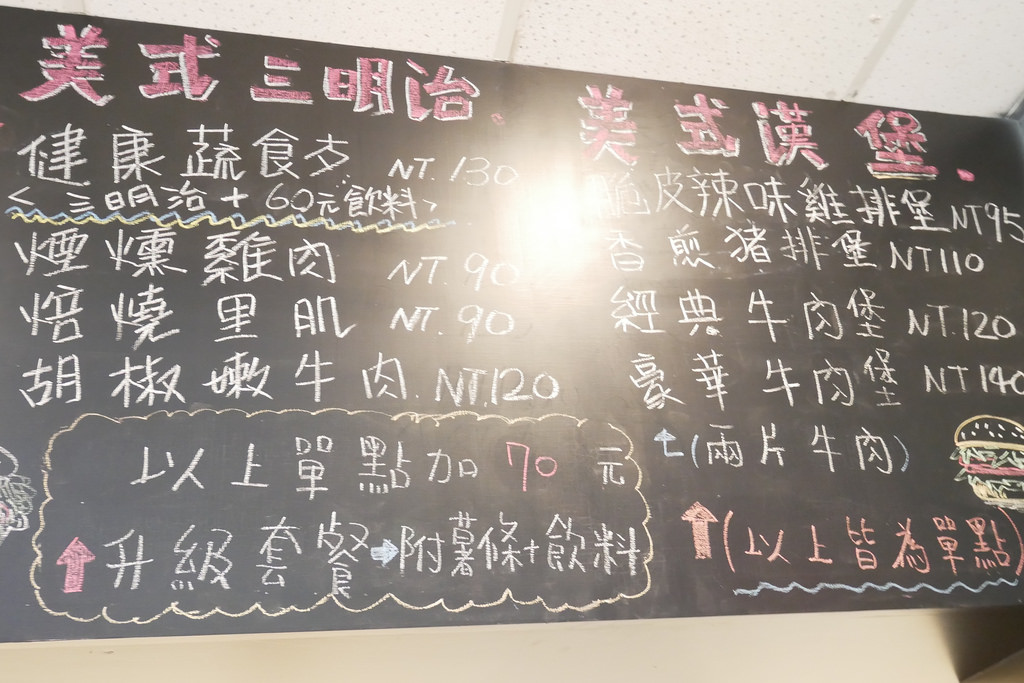 美式三明治.
健康蔬食歺 NT.130
<三明治+60元飲料>
煙燻雞肉 NT.90
焙燒里肌 NT.90
胡椒嫩牛肉. NT.120
以上單點加70元
升級套餐→附薯條+飲料
美式漢堡.
脆皮辣味雞排堡 NT95
香煎豬排堡 NT110
經典牛肉堡 NT.120
豪華牛肉堡 NT140
(兩片牛肉)
(以上皆為單點)